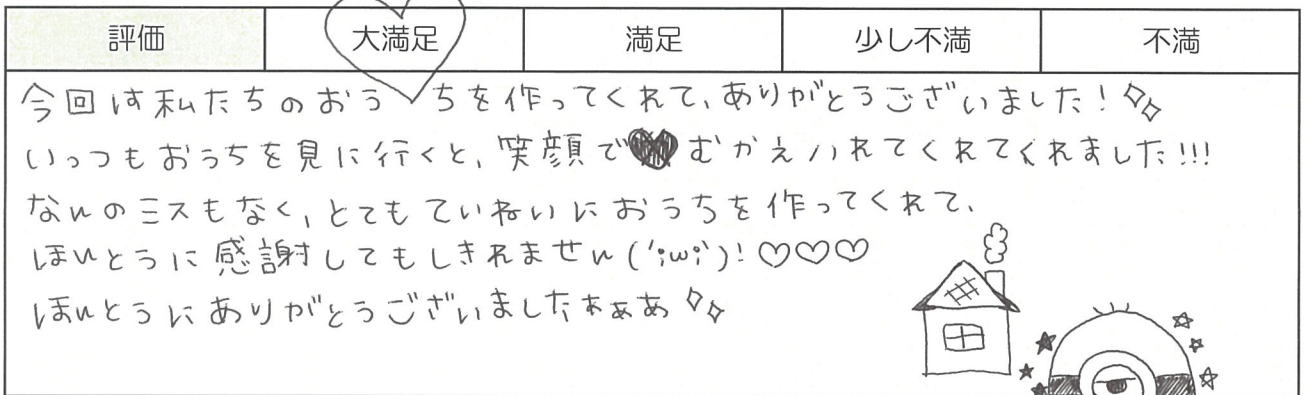 評価 大満足 満足 少し不満 不満
今回は私たちのおうちを作ってくれて、ありがとうございました!
いっつもおうちを見に行くと、笑顔でむかえいれてくれてくれました!!!
なんのミスもなく、とてもていねいにおうちを作ってくれて、
ほんとうに感謝してもしきれません(´;ω;`)!♡♡♡
ほんとうにありがとうございましたぁぁあ